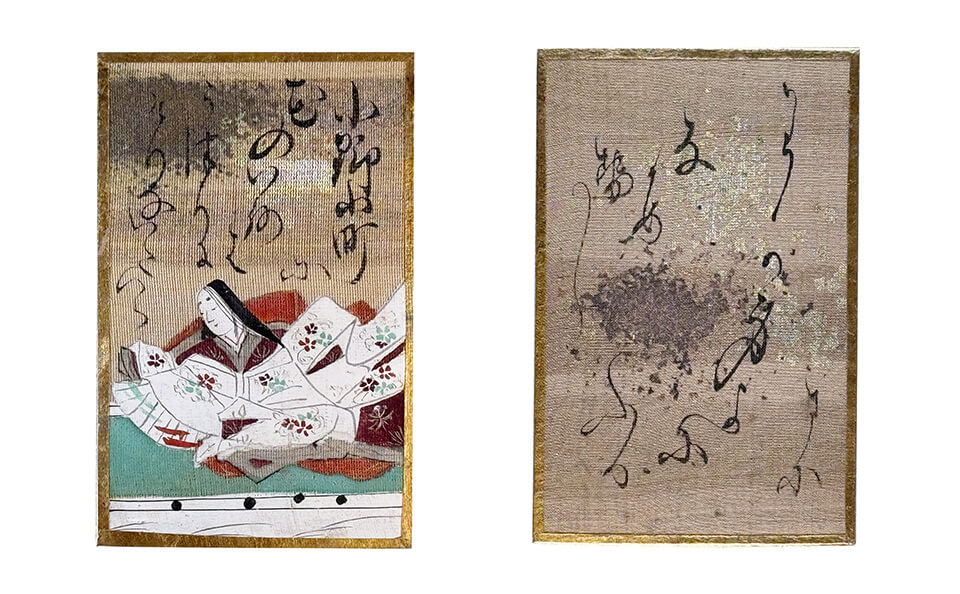 小野小町
花の
いろ
は
うつりに
けりないたつら
に
わか
身よ
に
ふる
な
かめ
勢し
まに